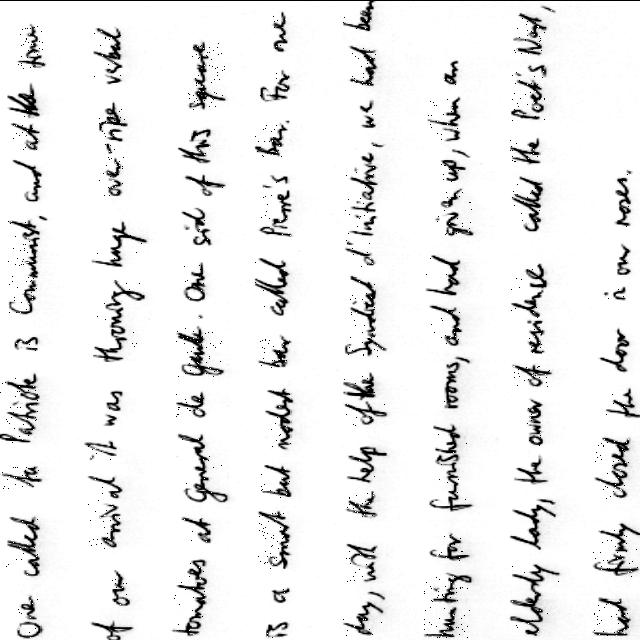 One called the Patriote is Communist, and at the time
of our arrival it was throwing huge over-ripe verbal
tomatoes at General de Gaulle. One side of this square
is a smart but modest bar called Pierre's bar. For one
day, with the help of the Syndicat d'Initiative, we had been
hunting for furnished rooms, and had given up, when an
elderly lady, the owner of residence called the Poet's Nest,
had firmly closed the door in our noses.